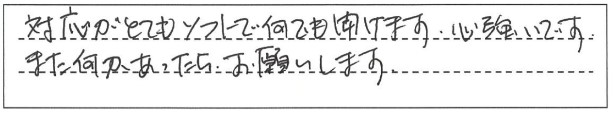 対応がとてもソフトで何でも聞けます。心強いです。
また何かあったらお願いします。